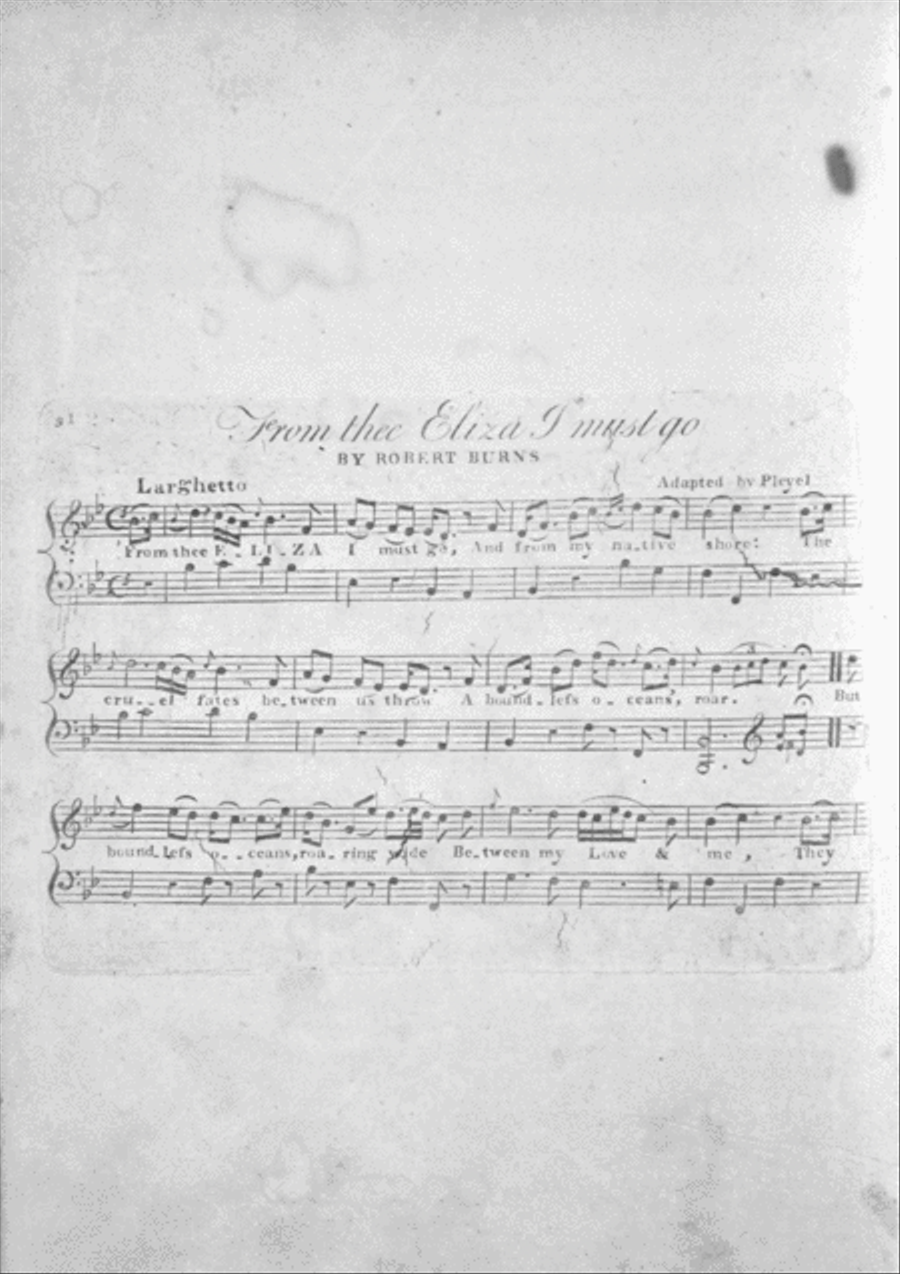 From thee Eliza I must go
BY ROBERT BURNS
Larghetto
Adapted by Pleyel
From thee E - LI - ZA I must go, And from my na-tive shore: The
cru--el fates be-tween us throw A bound-lefs o-ceans, roar. But
bound-lefs o--ceans, roa-ring wide Be-tween my Love & me, They